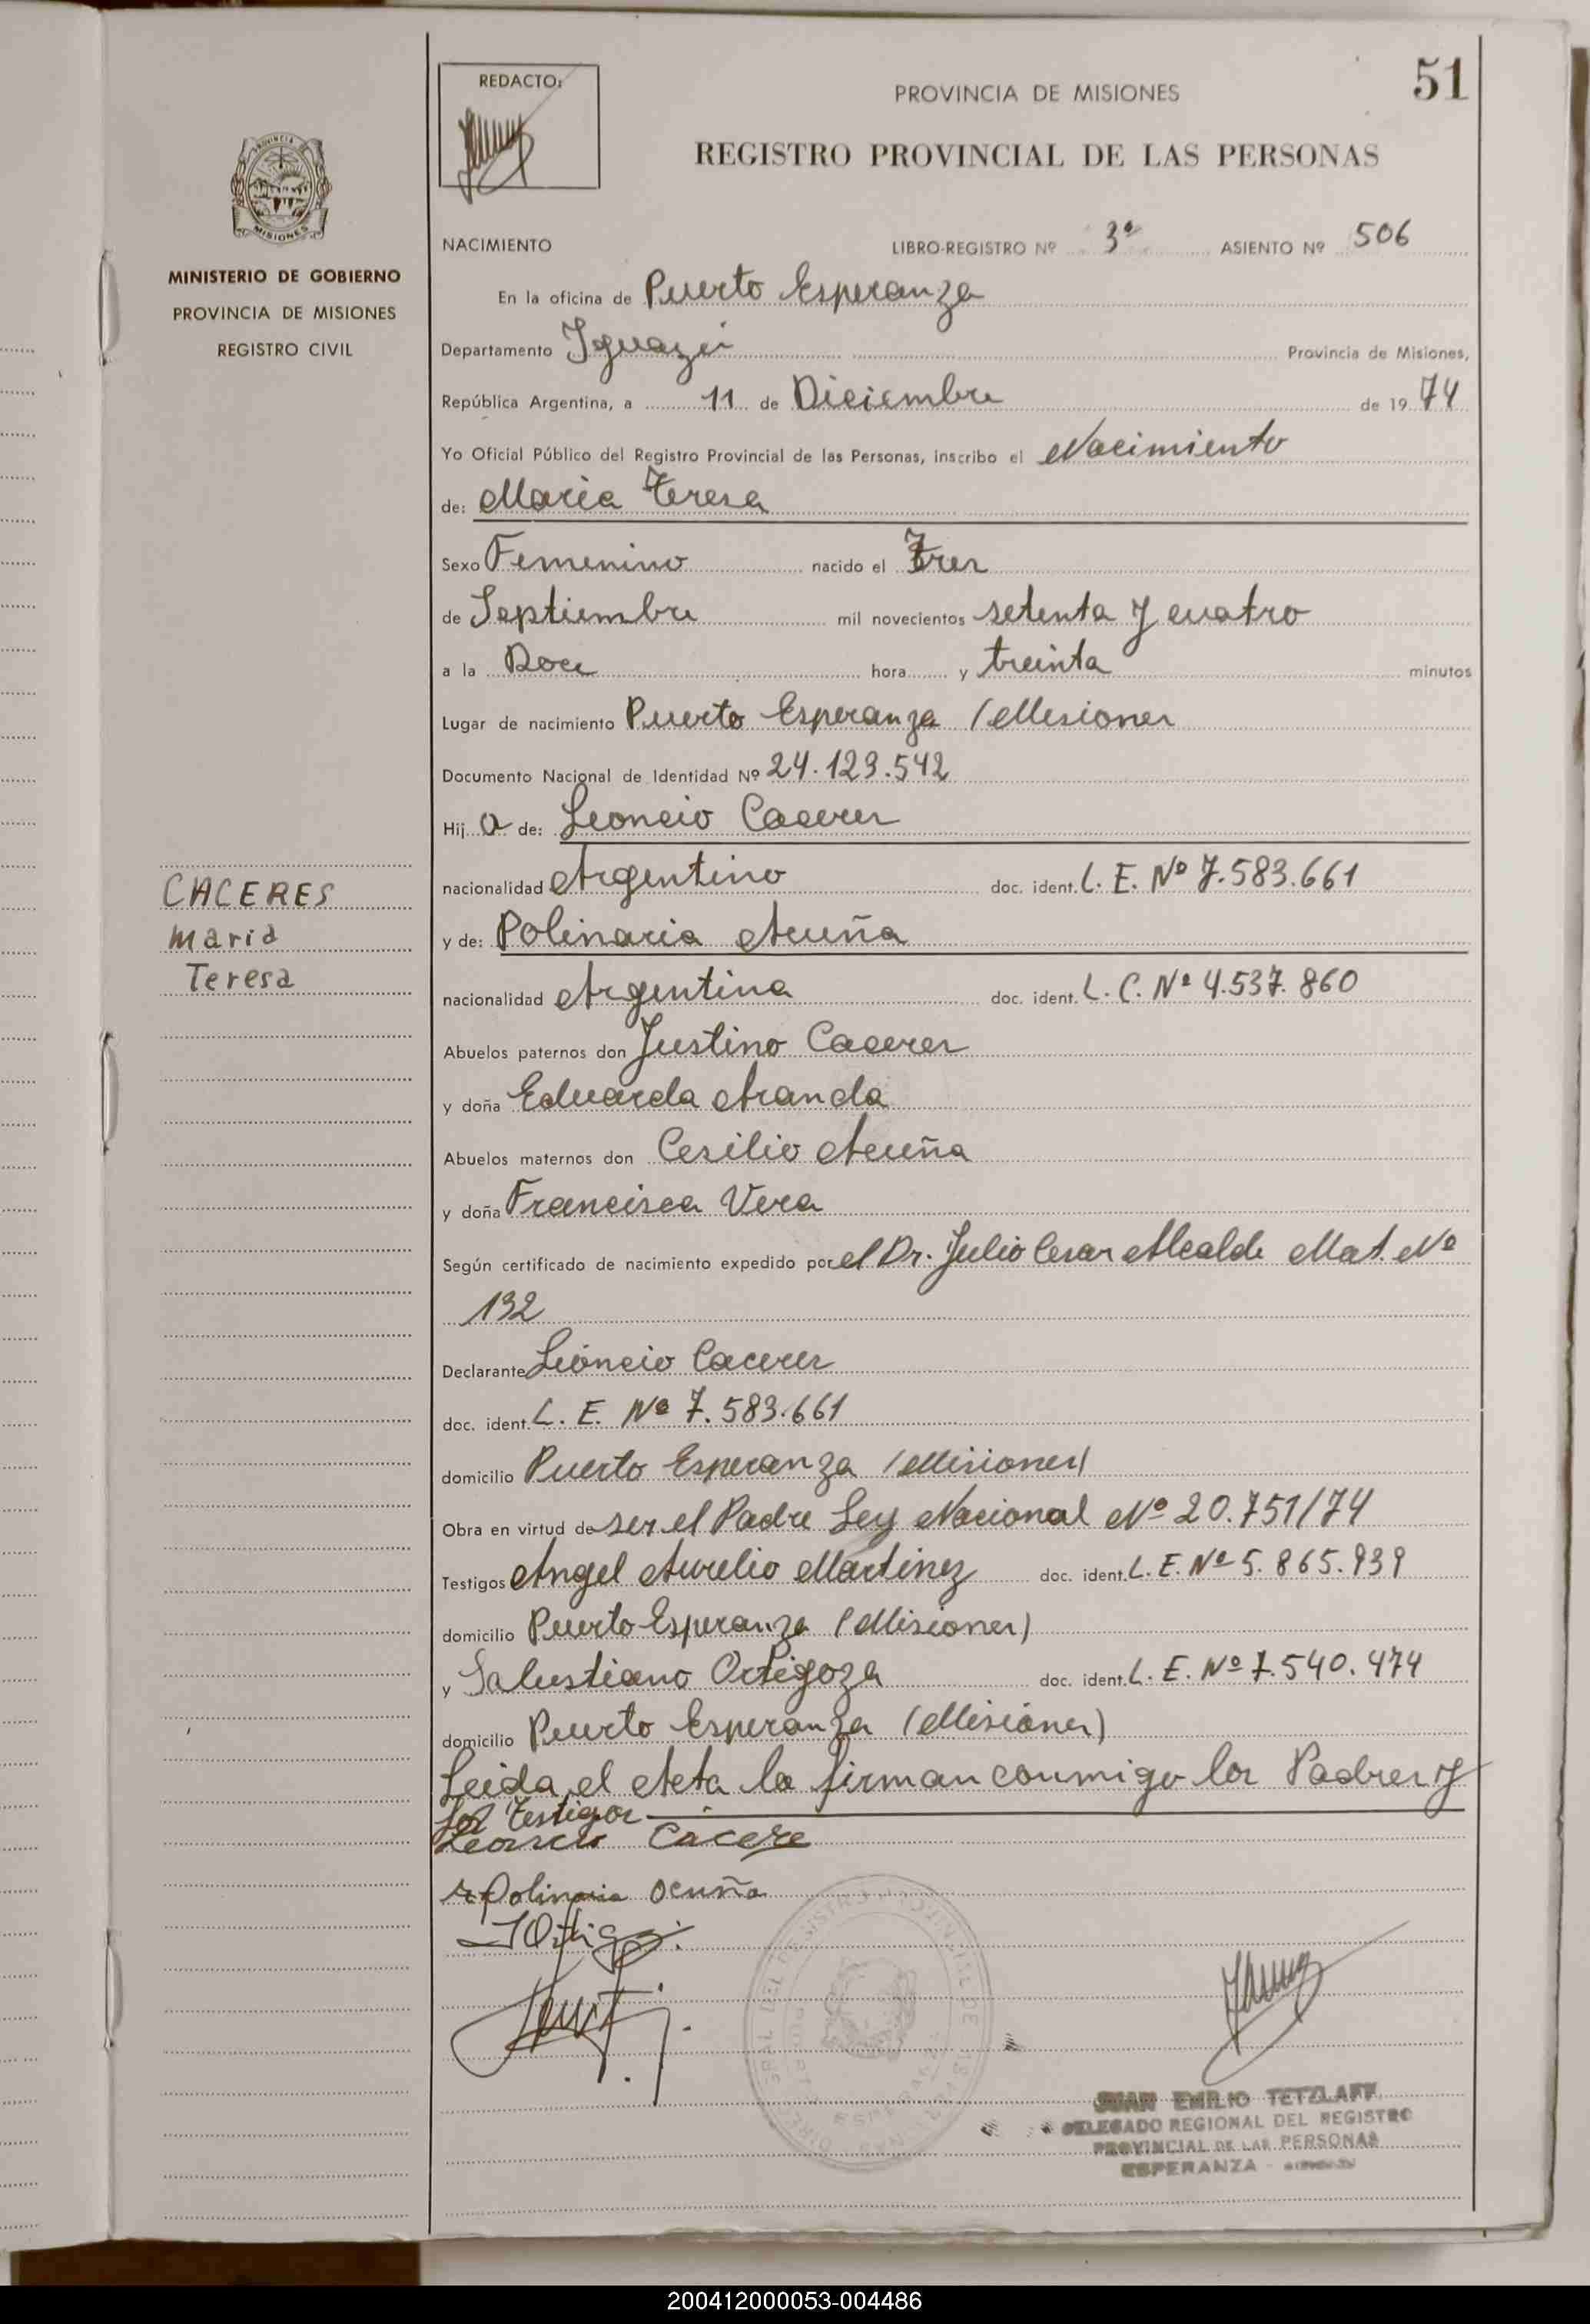 51
REDACTO:
PROVINCIA DE MISIONES
REGISTRO PROVINCIAL DE LAS PERSONAS
PROVINCIA DE
MISIONES
MINISTERIO DE GOBIERNO
PROVINCIA DE MISIONES
REGISTRO CIVIL
CACERES
Maria
Teresa
NACIMIENTO LIBRO-REGISTRO Nº 3º ASIENTO Nº 506
En la oficina de Puerto Esperanza
Departamento Iguazú Provincia de Misiones,
República Argentina, a 11 de Diciembre de 19 74
Yo Oficial Público del Registro Provincial de las Personas, inscribo el Nacimiento
de: Maria Teresa
Sexo Femenino nacido el Tres
de Septiembre mil novecientos setenta y cuatro
a la Doce hora y treinta minutos
Lugar de nacimiento Puerto Esperanza (Misiones
Documento Nacional de Identidad Nº 24.123.542
Hij a de: Leoncio Caceres
nacionalidad Argentino doc. ident. L. E. Nº 7.583.661
y de: Polinaria Acuña
nacionalidad Argentina doc. ident. L. C. Nº 4.537.860
Abuelos paternos don Justino Caceres
y doña Eduarda Aranda
Abuelos maternos don Cesilio Acuña
y doña Francisca Vera
Según certificado de nacimiento expedido por el Dr. Julio Cesar Alcalde Mat. Nº
132
Declarante Leoncio Caceres
doc. ident. L. E. Nº 7.583.661
domicilio Puerto Esperanza (Misiones)
Obra en virtud de ser el Padre Ley Nacional Nº 20.751/74
Testigos Angel Aurelio Martinez doc. ident. L. E. Nº 5.865.939
domicilio Puerto Esperanza (Misiones)
y Salustiano Ortigoza doc. ident. L. E. Nº 7.540.474
domicilio Puerto Esperanza (Misiones)
Leida el Acta la firman conmigo los Padres y
los Testigos
Leoncio Cacere
Polinaria Acuña
JUAN EMILIO TETZLAFF
DELEGADO REGIONAL DEL REGISTRO
PROVINCIAL DE LAS PERSONAS
ESPERANZA
200412000053-004486